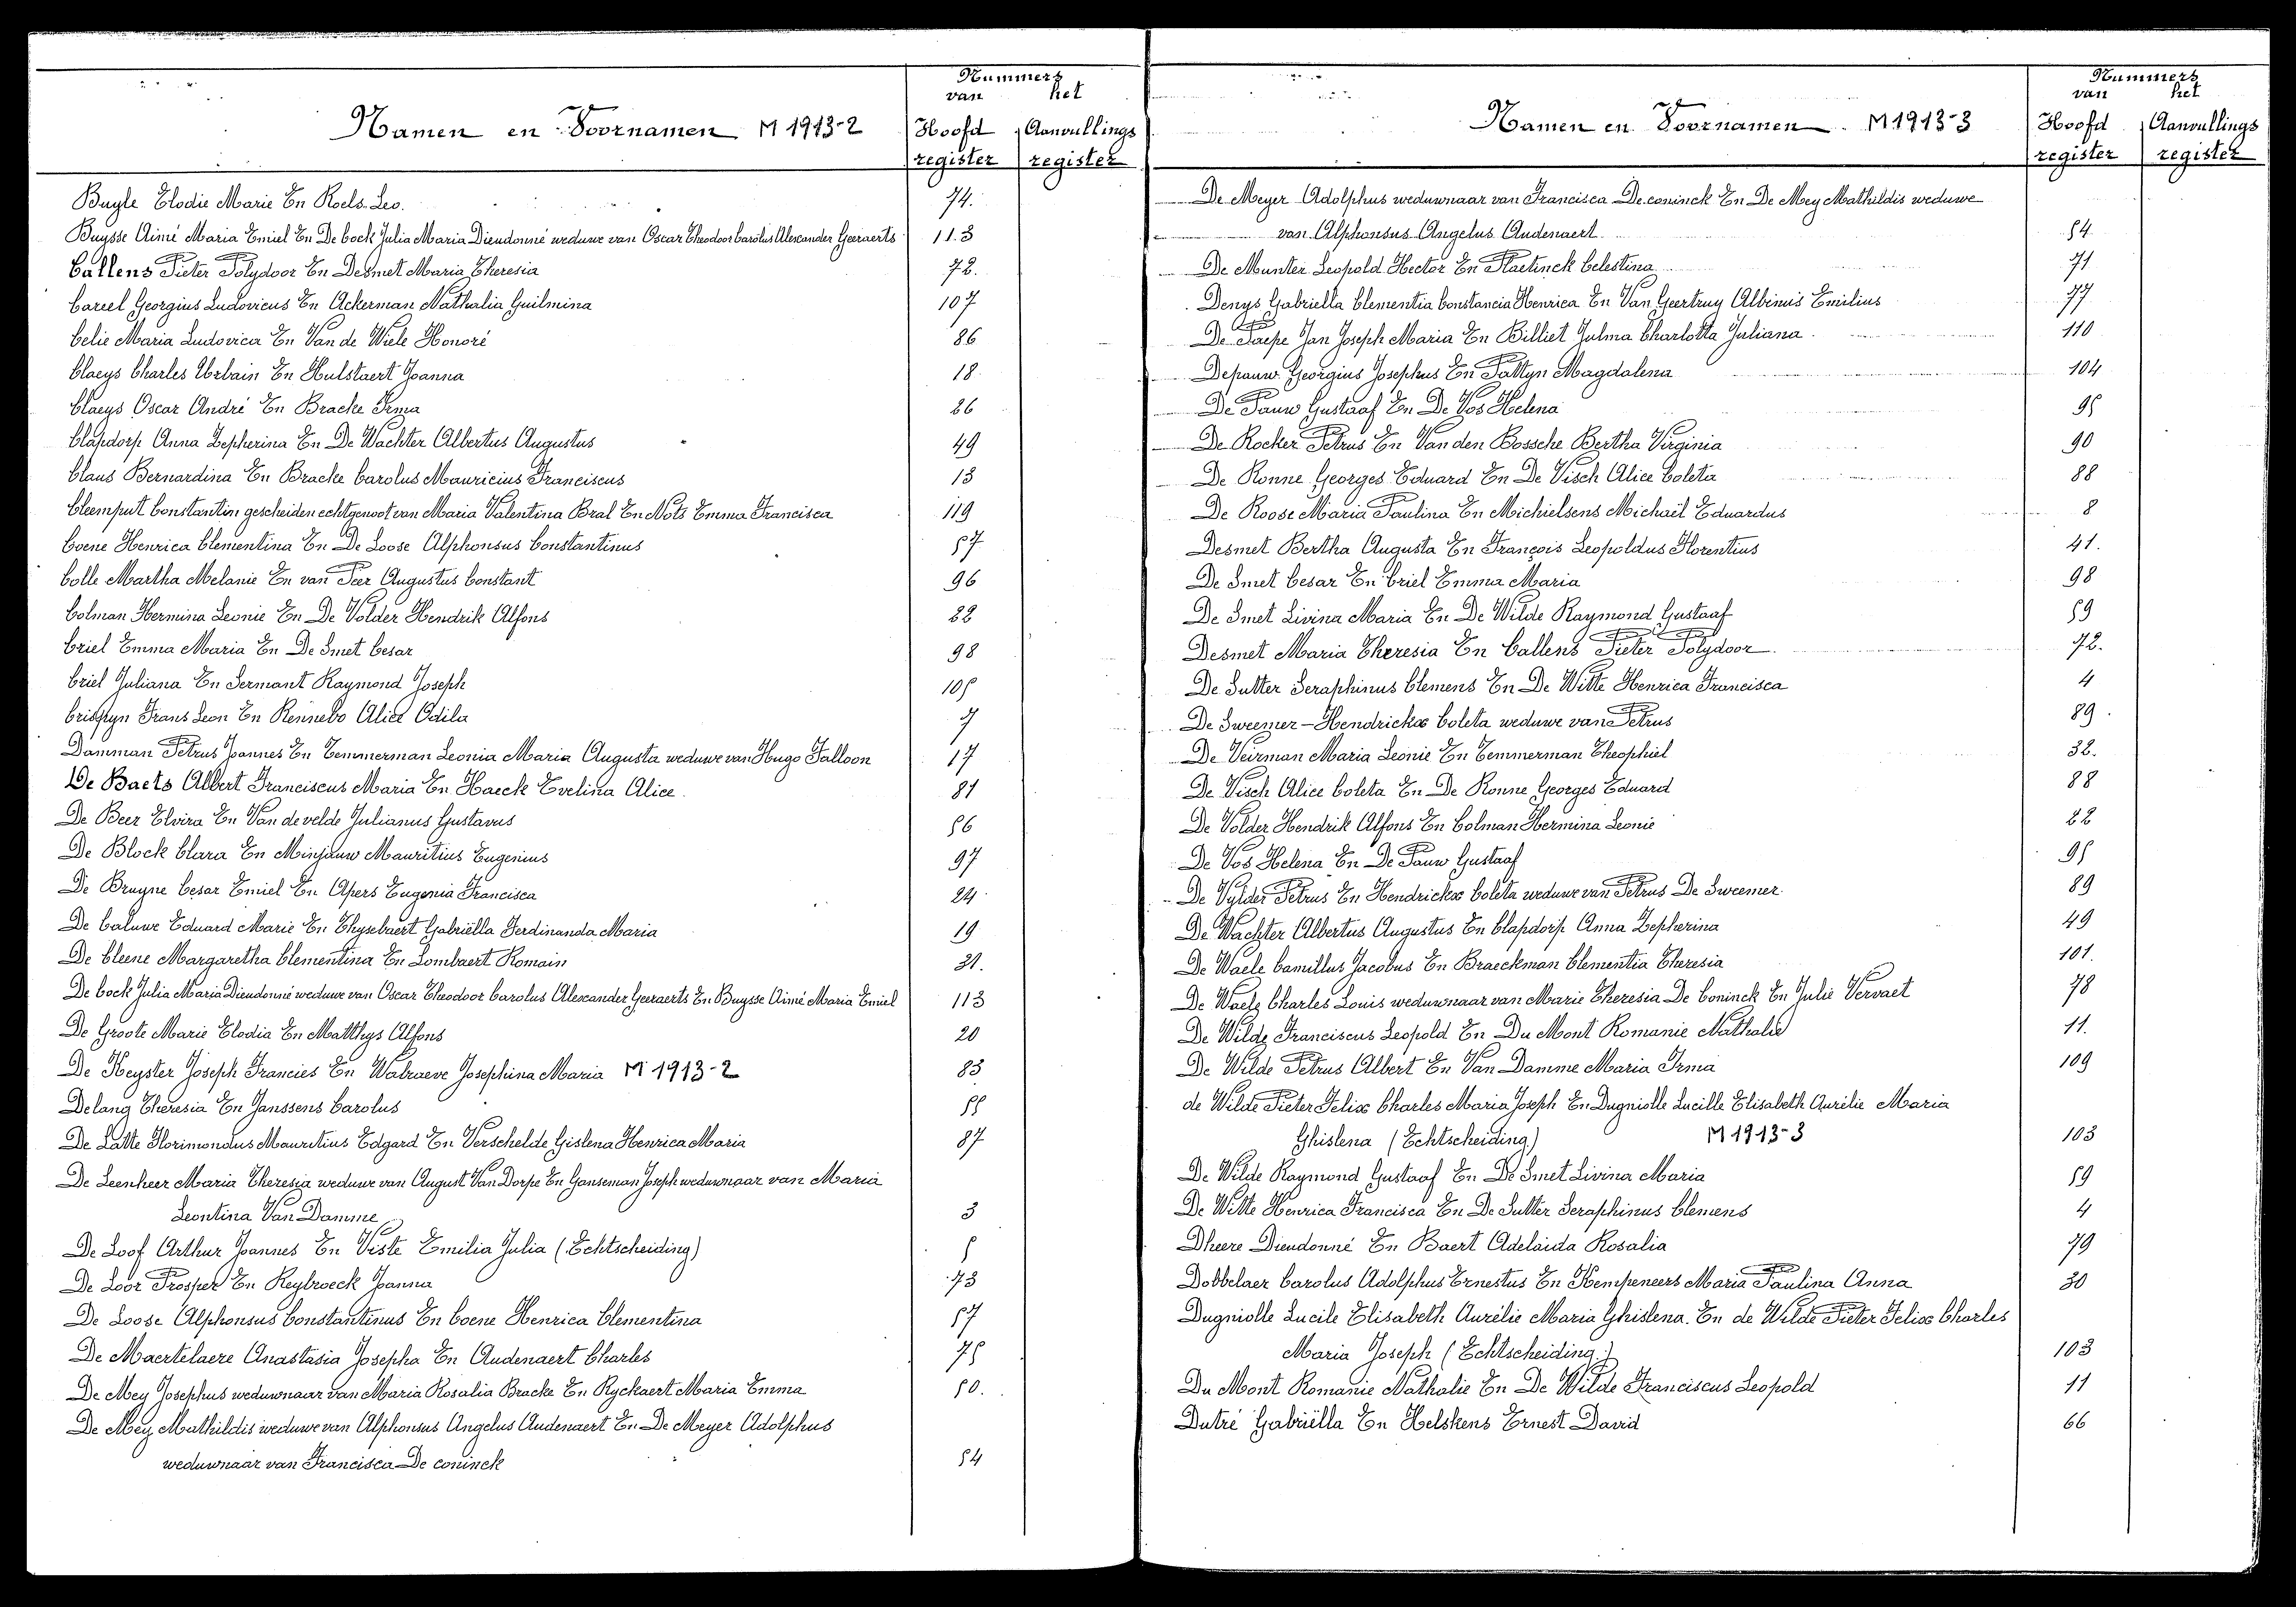 Namen en Voornamen M 1913-2
Nummers
van het
Hoofd register
Aanvullings register
Buyle Elodie Marie En Roels Leo. 74.
Buysse Aimé Maria Emiel En De Cock Julia Maria Dieudonné weduwe van Oscar Theodoor Carolus Alexander Geeraerts 113
Callens Pieter Polydoor En Desmet Maria Theresia 72.
Careel Georgius Ludovicus En Ackerman Nathalia Guilmina 107
Celie Maria Ludovica En Van de Wiele Honoré 86
Claeys Charles Urbain En Hulstaert Joanna 18
Claeys Oscar André En Bracke Irma 26
Clapdorp Anna Zepherina En De Wachter Albertus Augustus 49
Claus Bernardina En Bracke Carolus Mauricius Franciscus 13
Cleemput Constantin gescheiden echtgenoot van Maria Valentina Bral En Nots Emma Francisca 119
Coene Henrica Clementina En De Loose Alphonsus Constantinus 57
Colle Martha Melanie En van Peer Augustus Constant 96
Colman Hermina Leonie En De Volder Hendrik Alfons 22
Criel Emma Maria En De Smet Cesar 98
Criel Juliana En Sermant Raymond Joseph 105
Crispyn Frans Leon En Rennebo Alice Odila 7
Damman Petrus Joannes En Temmerman Leonia Maria Augusta weduwe van Hugo Falloon 17
De Baets Albert Franciscus Maria En Haeck Evelina Alice. 81
De Beer Elvira En Van de velde Julianus Gustavus 56
De Block Clara En Minjauw Mauritius Eugenius 97
De Bruyne Cesar Emiel En Apers Eugenia Francisca 24
De Caluwe Eduard Marie En Thysebaert Gabriëlla Ferdinanda Maria 19
De Cleene Margaretha Clementina En Lombaert Romain 31.
De Cock Julia Maria Dieudonné weduwe van Oscar Theodoor Carolus Alexander Geeraerts En Buysse Aimé Maria Emiel 113
De Groote Marie Elodia En Matthys Alfons 20
De Keyster Joseph Francies En Walraeve Josephina Maria M 1913-2 83
Delang Theresia En Janssens Carolus 55
De Latte Florimondus Mauritius Edgard En Verschelde Gislena Henrica Maria 87
De Leenheer Maria Theresia weduwe van August Van Dorpe En Ganseman Joseph weduwnaar van Maria
Leontina Van Damme 3
De Loof Arthur Joannes En Viste Emilia Julia (Echtscheiding) 5
De Loor Prosper En Reybroeck Joanna 73
De Loose Alphonsus Constantinus En Coene Henrica Clementina 57
De Maertelaere Anastasia Josepha En Audenaert Charles 75
De Mey Josephus weduwnaar van Maria Rosalia Bracke En Ryckaert Maria Emma 50.
De Mey Mathildis weduwe van Alphonsus Angelus Audenaert En De Meyer Adolphus
weduwnaar van Francisca De coninck 54
Namen en Voornamen M 1913-3
Nummers
van het
Hoofd register
Aanvullings register
De Meyer Adolphus weduwnaar van Francisca De coninck En De Mey Mathildis weduwe
van Alphonsus Angelus Audenaert 54
De Munter Leopold Hector En Plaetinck Celestina 71
Denys Gabriella Clementia Constancia Henrica En Van Geertruy Albinus Emilius 77
De Paepe Jan Joseph Maria En Billiet Julma Charlotta Juliana 110
Depauw Georgius Josephus En Pattyn Magdalena 104
De Pauw Gustaaf En De Vos Helena 95
De Rocker Petrus En Van den Bossche Bertha Virginia 90
De Ronne Georges Eduard En De Visch Alice Coleta 88
De Roose Maria Paulina En Michielsens Michaël Eduardus 8
Desmet Bertha Augusta En François Leopoldus Florentius 41.
De Smet Cesar En Criel Emma Maria 98
De Smet Livina Maria En De Wilde Raymond Gustaaf 59
Desmet Maria Theresia En Callens Pieter Polydoor 72.
De Sutter Seraphinus Clemens En De Witte Henrica Francisca 4
De Sweemer-Hendrickx Coleta weduwe van Petrus 89
De Veirman Maria Leonie En Temmerman Theophiel 32.
De Visch Alice Coleta En De Ronne Georges Eduard 88
De Volder Hendrik Alfons En Colman Hermina Leonie 22
De Vos Helena En De Pauw Gustaaf 95
De Vylder Petrus En Hendrickx Coleta weduwe van Petrus De Sweemer 89
De Wachter Albertus Augustus En Clapdorp Anna Zepherina 49
De Waele Camillus Jacobus En Braeckman Clementia Theresia 101.
De Waele Charles Louis weduwnaar van Marie Theresia De Coninck En Julie Vervaet 78
De Wilde Franciscus Leopold En Du Mont Romanie Nathalie 11.
De Wilde Petrus Albert En Van Damme Maria Irma 109
de Wilde Pieter Felix Charles Maria Joseph En Dugniolle Lucille Elisabeth Aurélie Maria
Ghislena (Echtscheiding) M 1913-3 103
De Wilde Raymond Gustaaf En De Smet Livina Maria 59
De Witte Henrica Francisca En De Sutter Seraphinus Clemens 4
Dheere Dieudonné En Baert Adelaida Rosalia 79
Dobbelaer Carolus Adolphus Ernestus En Kempeneers Maria Paulina Anna 30
Dugniolle Lucile Elisabeth Aurélie Maria Ghislena. En de Wilde Pieter Felix Charles
Maria Joseph (Echtscheiding.) 103
Du Mont Romanie Nathalie En De Wilde Franciscus Leopold 11
Dutré Gabriëlla En Helskens Ernest David 66